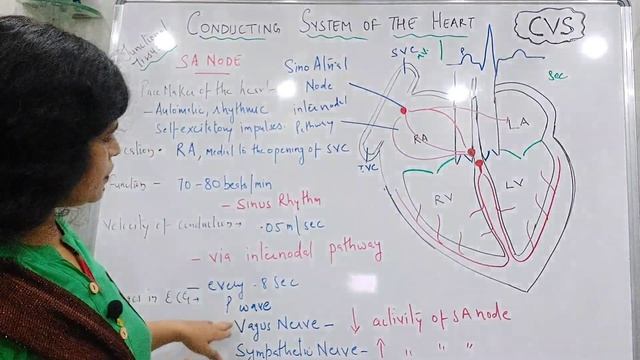 CONDUCTING SYSTEM OF THE HEART
CVS
Junctional
Tissue
SA NODE
PaceMaker of the heart -
- Automatic, rhythmic
Self excitatory impulses
Location - RA, medial to the opening of SVC
Function - 70-80 beats/min
- Sinus Rhythm
Velocity of conduction → .05 m/sec
- via internodal pathway
- every .8 sec
in ECG →
P wave
Vagus Nerve - ↓ activity of SA node
Sympathetic Nerve - ↑ " " "
Sino Atrial
Node
internodal
Pathway
SVC
IVC
RA
LA
RV
LV
P
sec